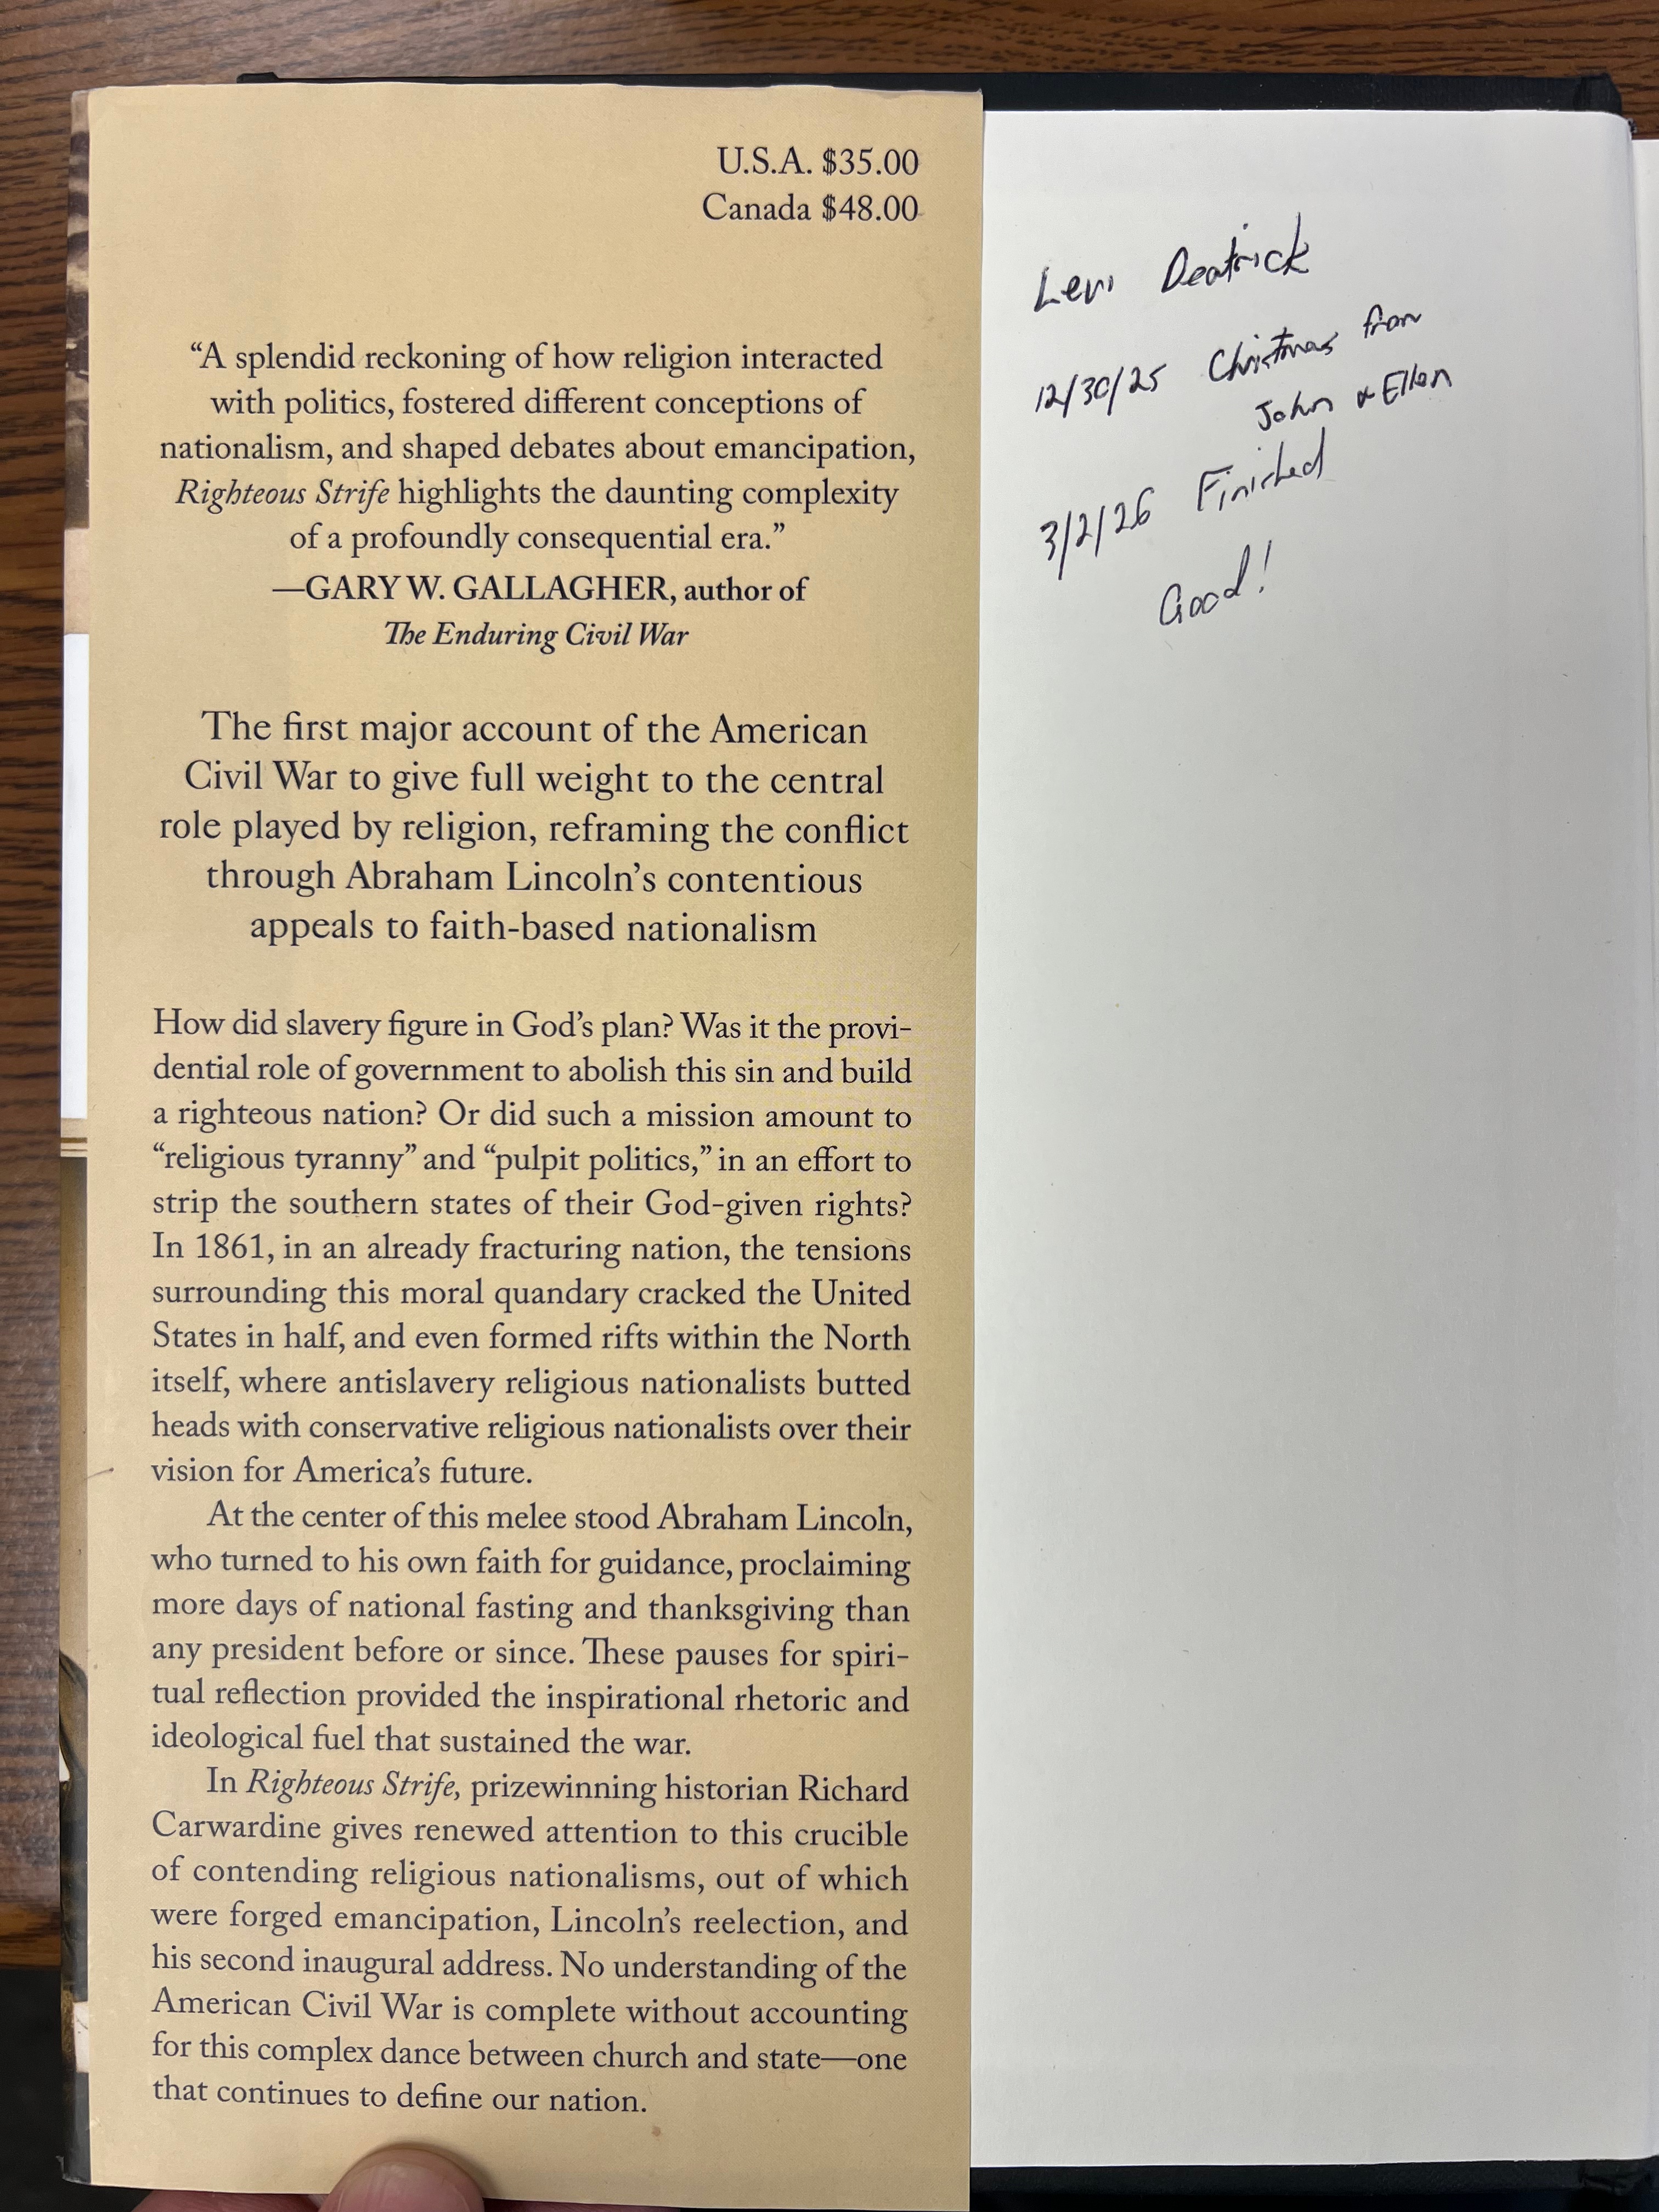 U.S.A. $35.00
Canada $48.00
“A splendid reckoning of how religion interacted
with politics, fostered different conceptions of
nationalism, and shaped debates about emancipation,
Righteous Strife highlights the daunting complexity
of a profoundly consequential era.”
—GARY W. GALLAGHER, author of
The Enduring Civil War
The first major account of the American
Civil War to give full weight to the central
role played by religion, reframing the conflict
through Abraham Lincoln’s contentious
appeals to faith-based nationalism
How did slavery figure in God’s plan? Was it the provi-
dential role of government to abolish this sin and build
a righteous nation? Or did such a mission amount to
“religious tyranny” and “pulpit politics,” in an effort to
strip the southern states of their God-given rights?
In 1861, in an already fracturing nation, the tensions
surrounding this moral quandary cracked the United
States in half, and even formed rifts within the North
itself, where antislavery religious nationalists butted
heads with conservative religious nationalists over their
vision for America’s future.
At the center of this melee stood Abraham Lincoln,
who turned to his own faith for guidance, proclaiming
more days of national fasting and thanksgiving than
any president before or since. These pauses for spiri-
tual reflection provided the inspirational rhetoric and
ideological fuel that sustained the war.
In Righteous Strife, prizewinning historian Richard
Carwardine gives renewed attention to this crucible
of contending religious nationalisms, out of which
were forged emancipation, Lincoln’s reelection, and
his second inaugural address. No understanding of the
American Civil War is complete without accounting
for this complex dance between church and state—one
that continues to define our nation.
Levi Deatrick
12/30/25 Christmas from
John & Ellen
3/2/26 Finished
Good!